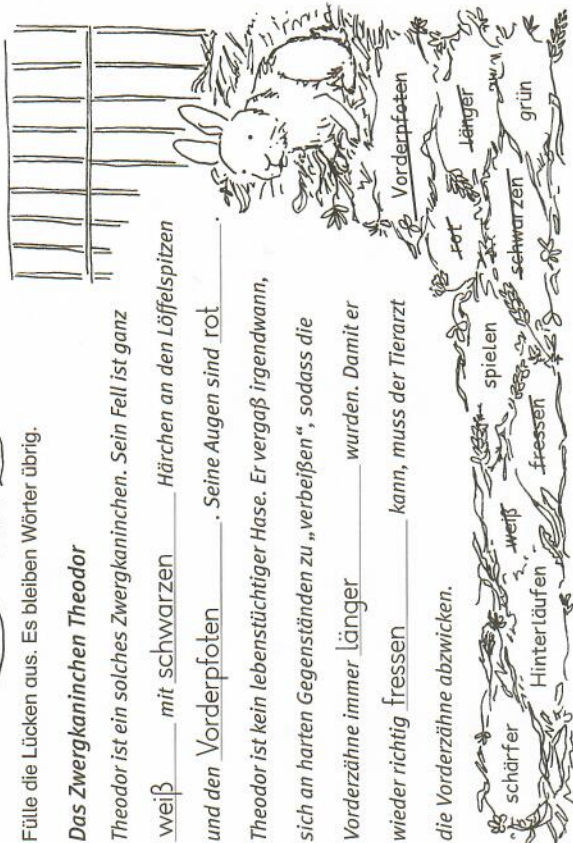 Fülle die Lücken aus. Es bleiben Wörter übrig.
Das Zwergkaninchen Theodor
Theodor ist ein solches Zwergkaninchen. Sein Fell ist ganz
weiß mit schwarzen Härchen an den Löffelspitzen
und den Vorderpfoten. Seine Augen sind rot.
Theodor ist kein lebenstüchtiger Hase. Er vergaß irgendwann,
sich an harten Gegenständen zu „verbeißen“, sodass die
Vorderzähne immer länger wurden. Damit er
wieder richtig fressen kann, muss der Tierarzt
die Vorderzähne abzwicken.
Vorderpfoten
rot länger
spielen schwarzen grün
weiß fressen
schärfer Hinterläufen